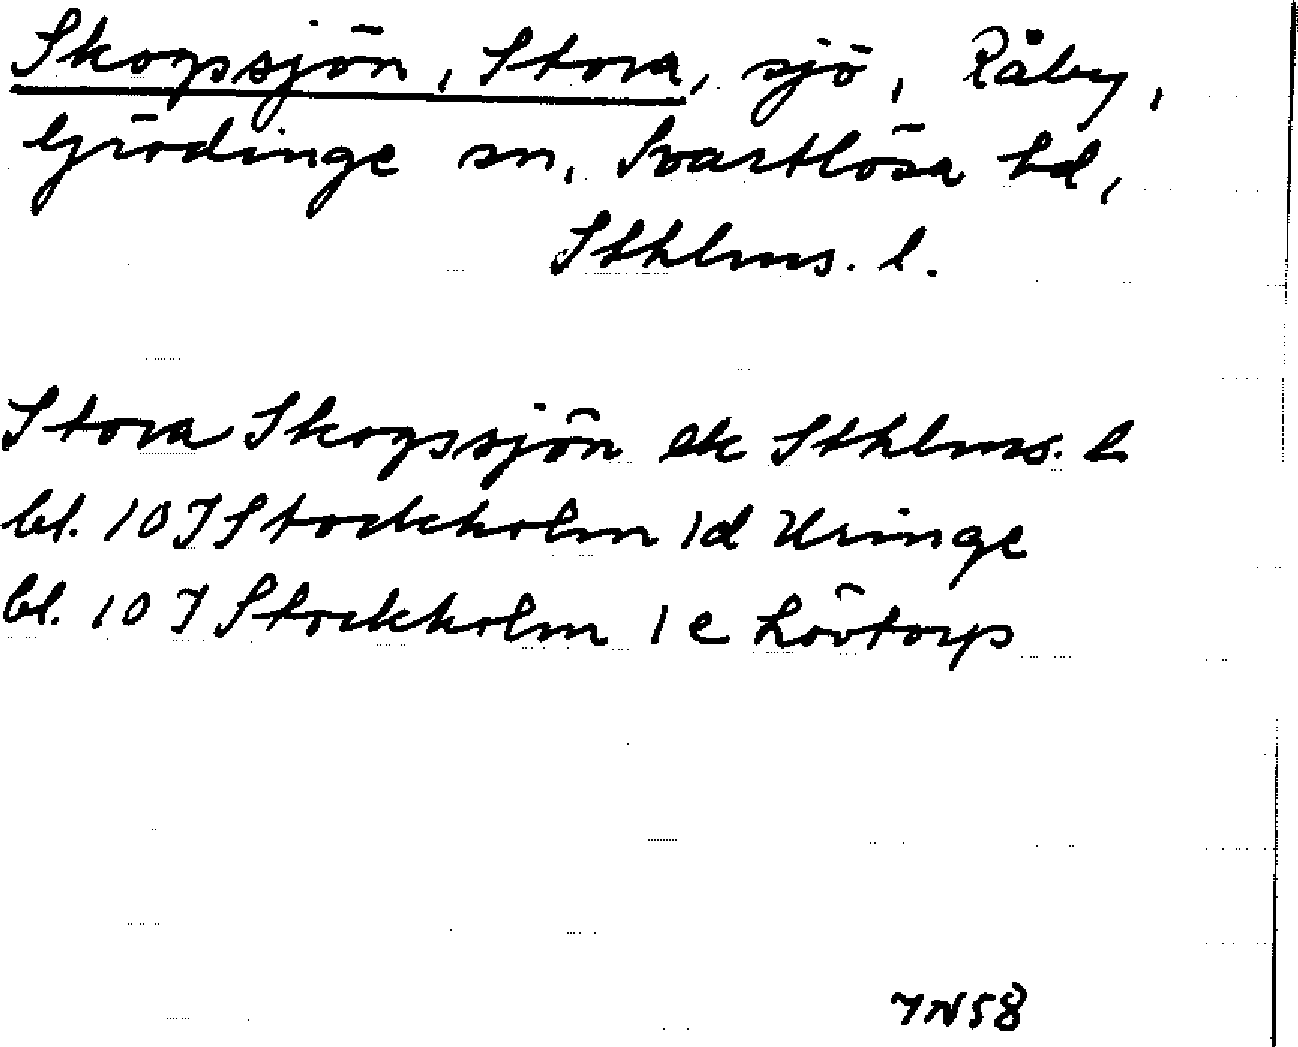 Skogssjön, Stora, sjö, Råby,
Grödinge sn, Svartlösa hd,
Sthlms. l.
Stora Skogssjön ek Sthlms. l
bl. 10 I Stockholm 1d Uringe
bl. 10 I Stockholm 1e Lövtorp
IN58